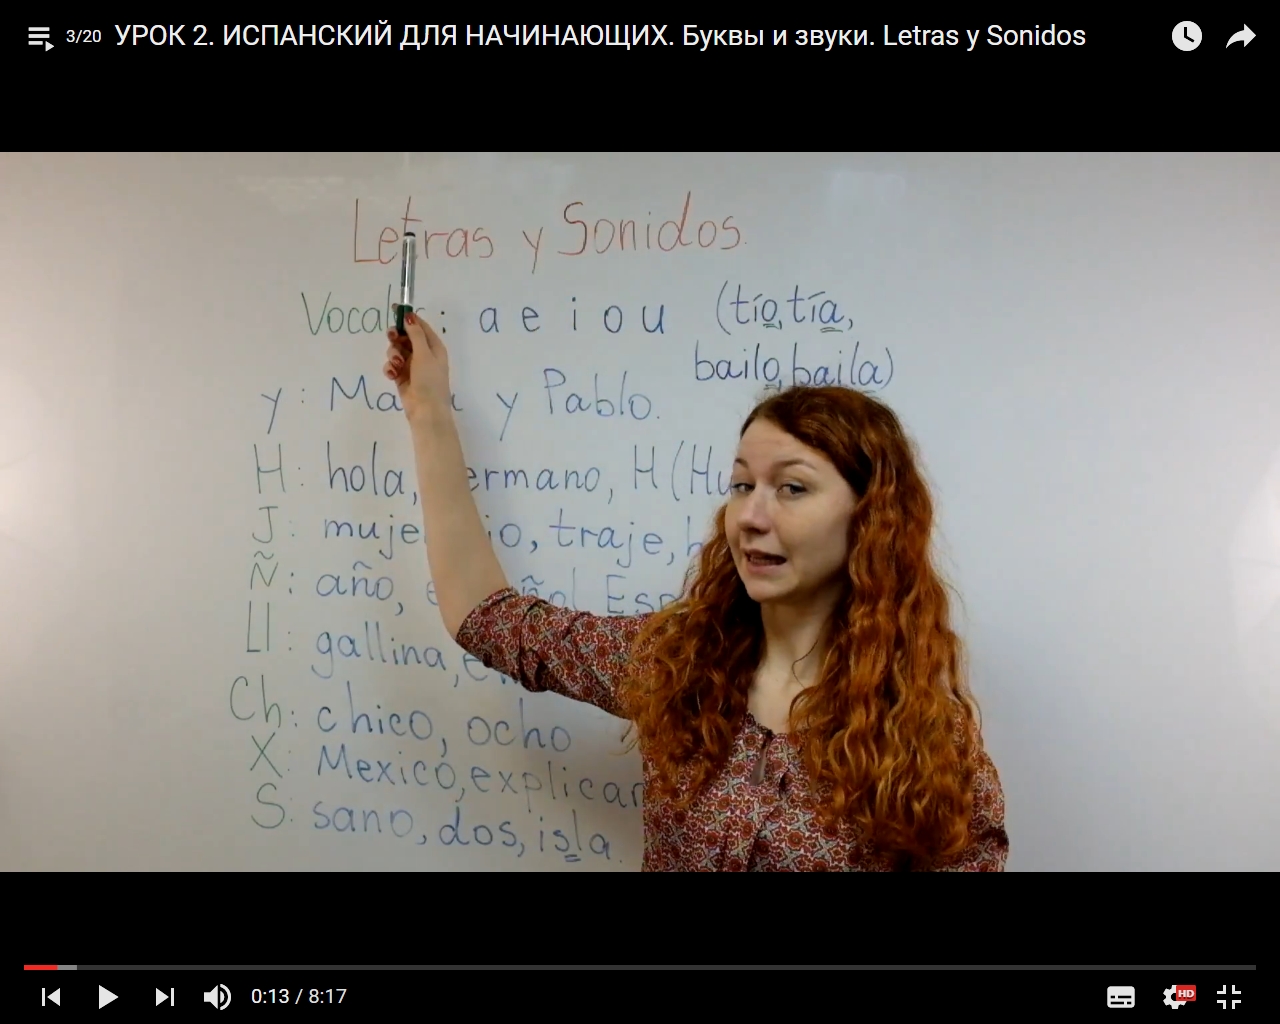 3/20 УРОК 2. ИСПАНСКИЙ ДЛЯ НАЧИНАЮЩИХ. Буквы и звуки. Letras y Sonidos
Letras y Sonidos.
: a e i o u (tío, tía,
bailo, baila)
y: y Pablo.
H: hola, H (
J: traje,
Ñ: año,
Ll: gallina,
Ch: chico, ocho
X: Mexico, explicar
S: sano, dos, isla.
0:13 / 8:17
HD